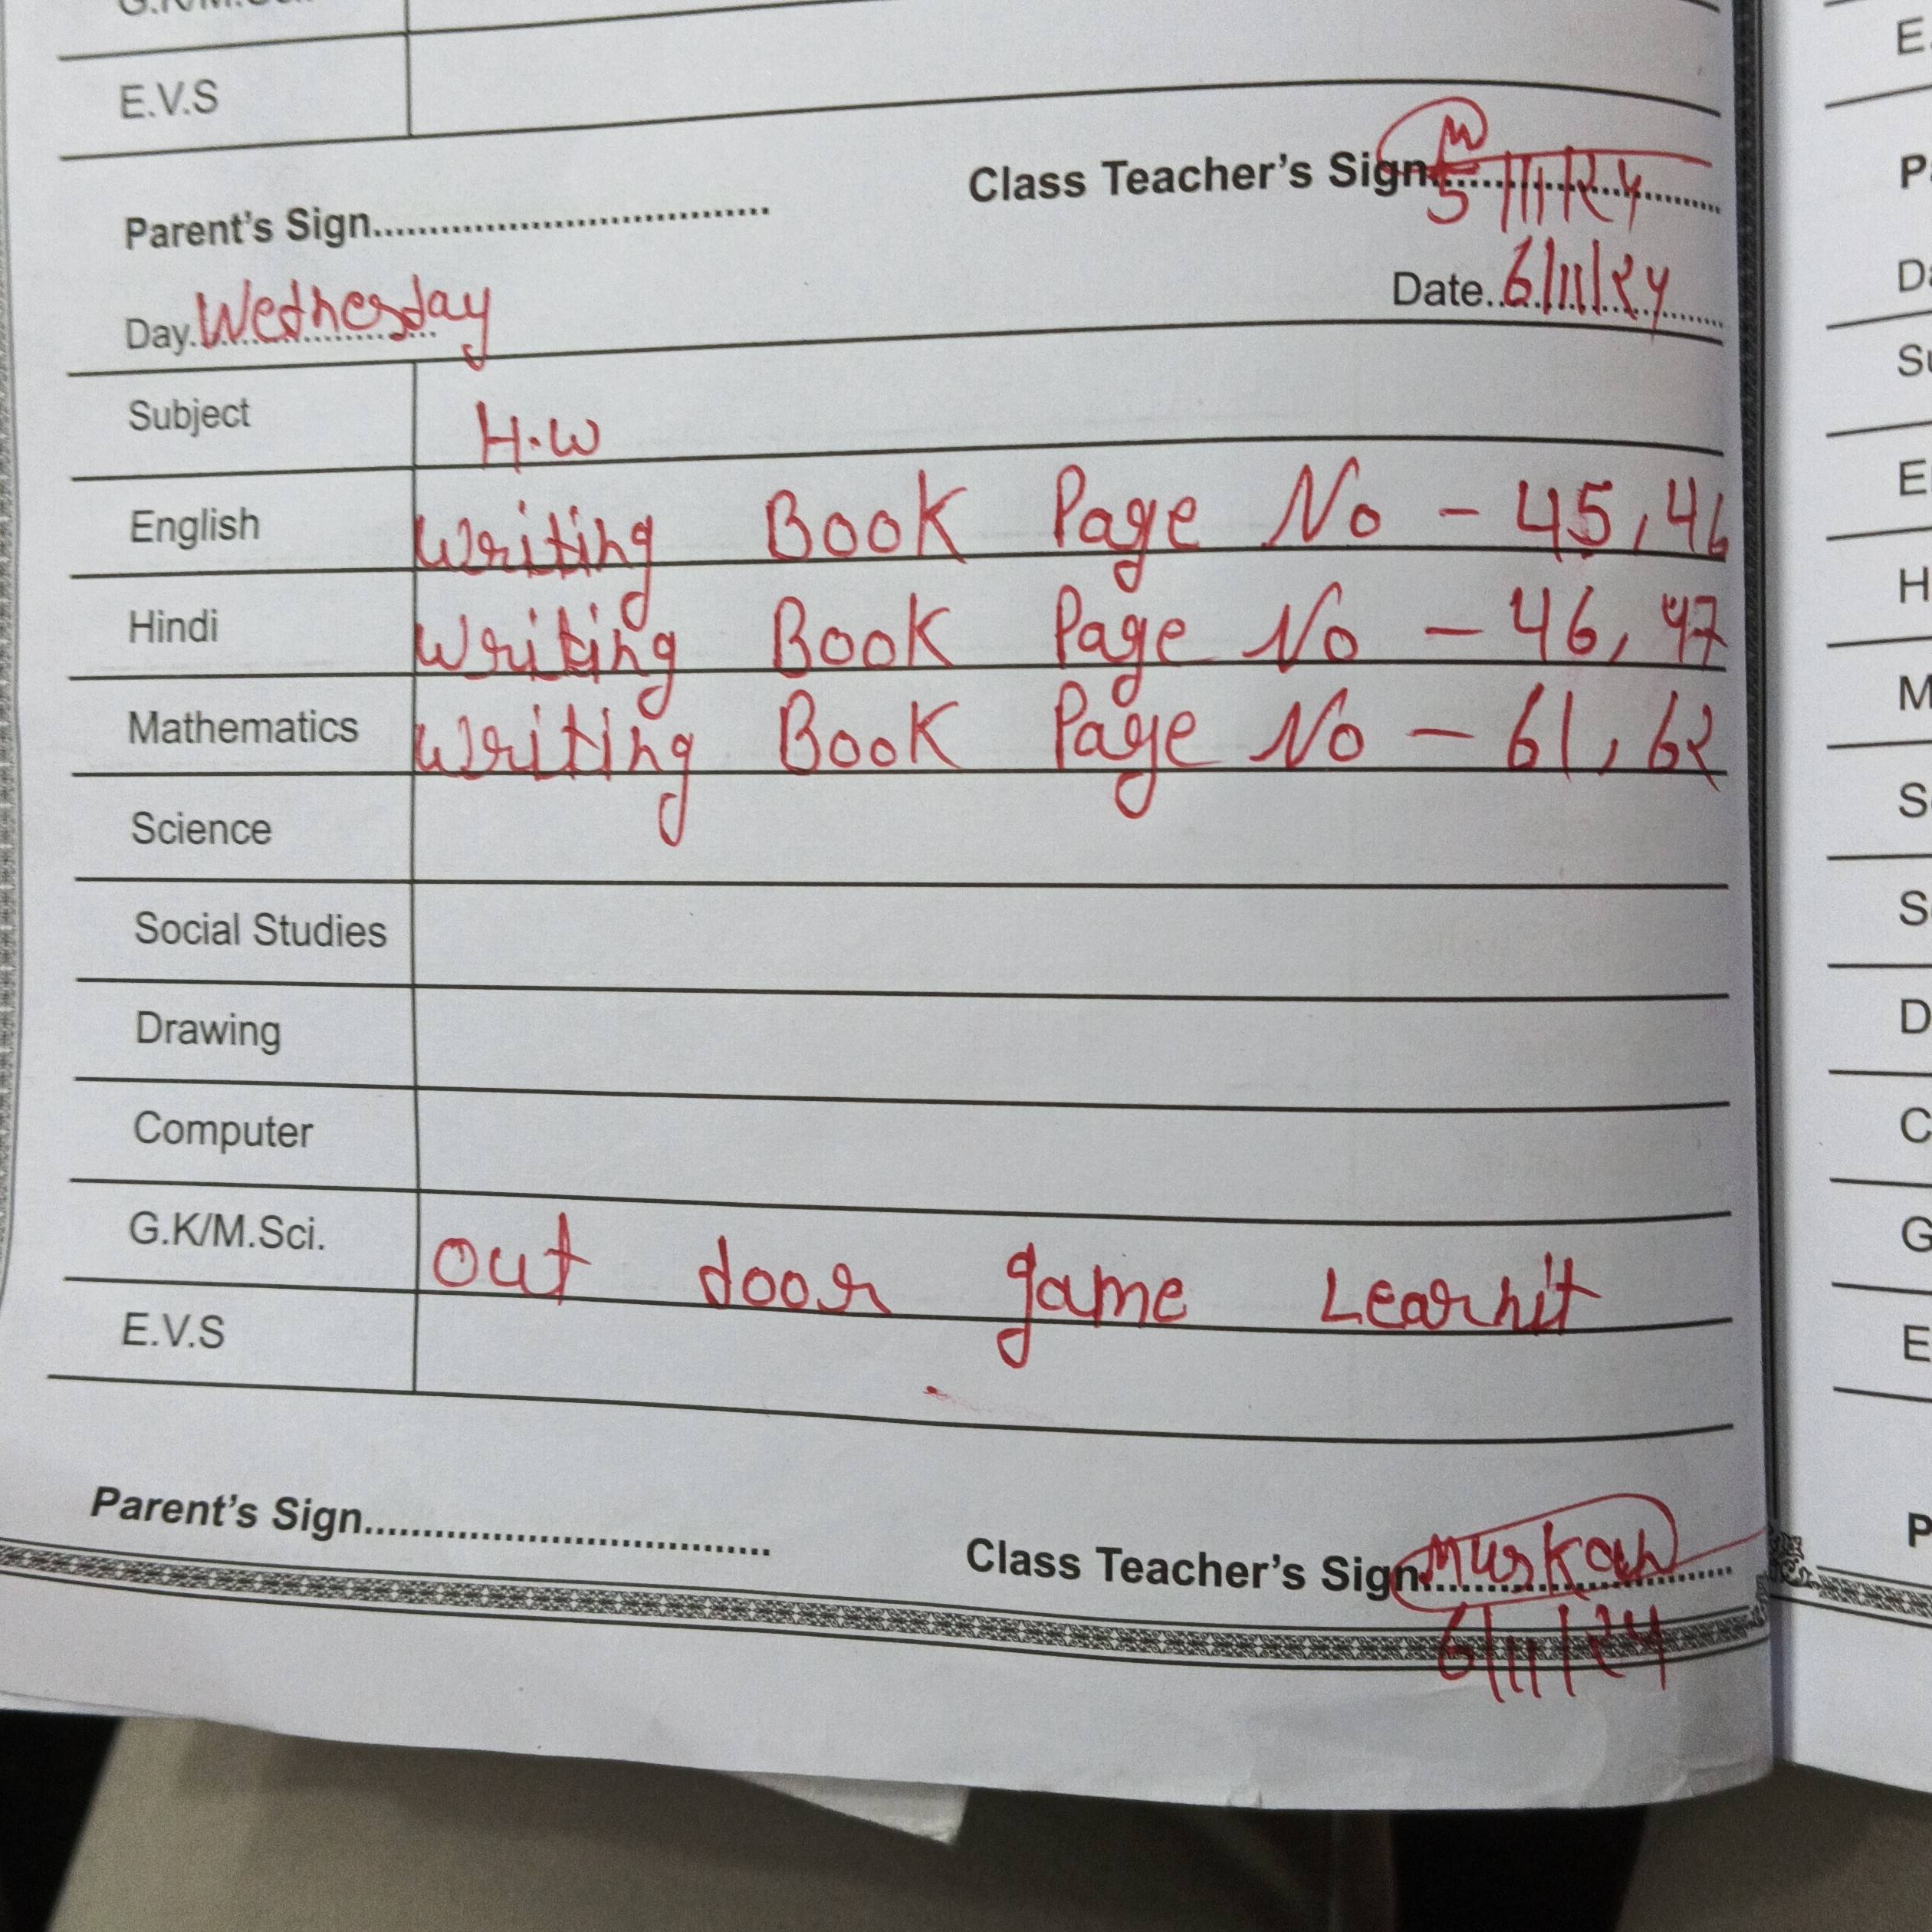 E.V.S
Parent's Sign..................................... Class Teacher's Sign.............................
5/11/24
Day. Wednesday Date.. 6/11/24
Subject H.W
English Writing Book Page No - 45, 46
Hindi Writing Book Page No - 46, 47
Mathematics Writing Book Page No - 61, 62
Science
Social Studies
Drawing
Computer
G.K/M.Sci. out door game Learn it
E.V.S
Parent's Sign..................................... Class Teacher's Sign. Muskan
6/11/24